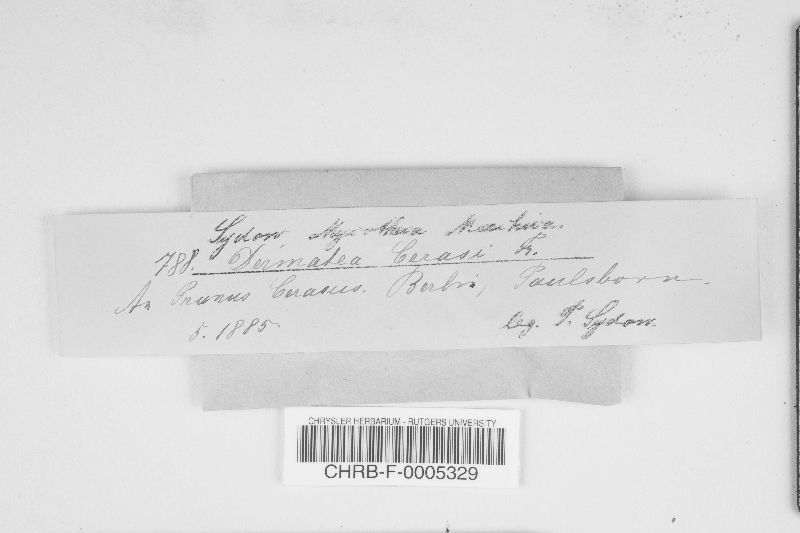 Sydow Mycotheca Marchica.
788. Dermatea Cerasi Fr.
An Prunus Cerasus. Berlin, Paulsborn.
5. 1885.
leg. P. Sydow.
CHRYSLER HERBARIUM - RUTGERS UNIVERSITY
CHRB-F-0005329